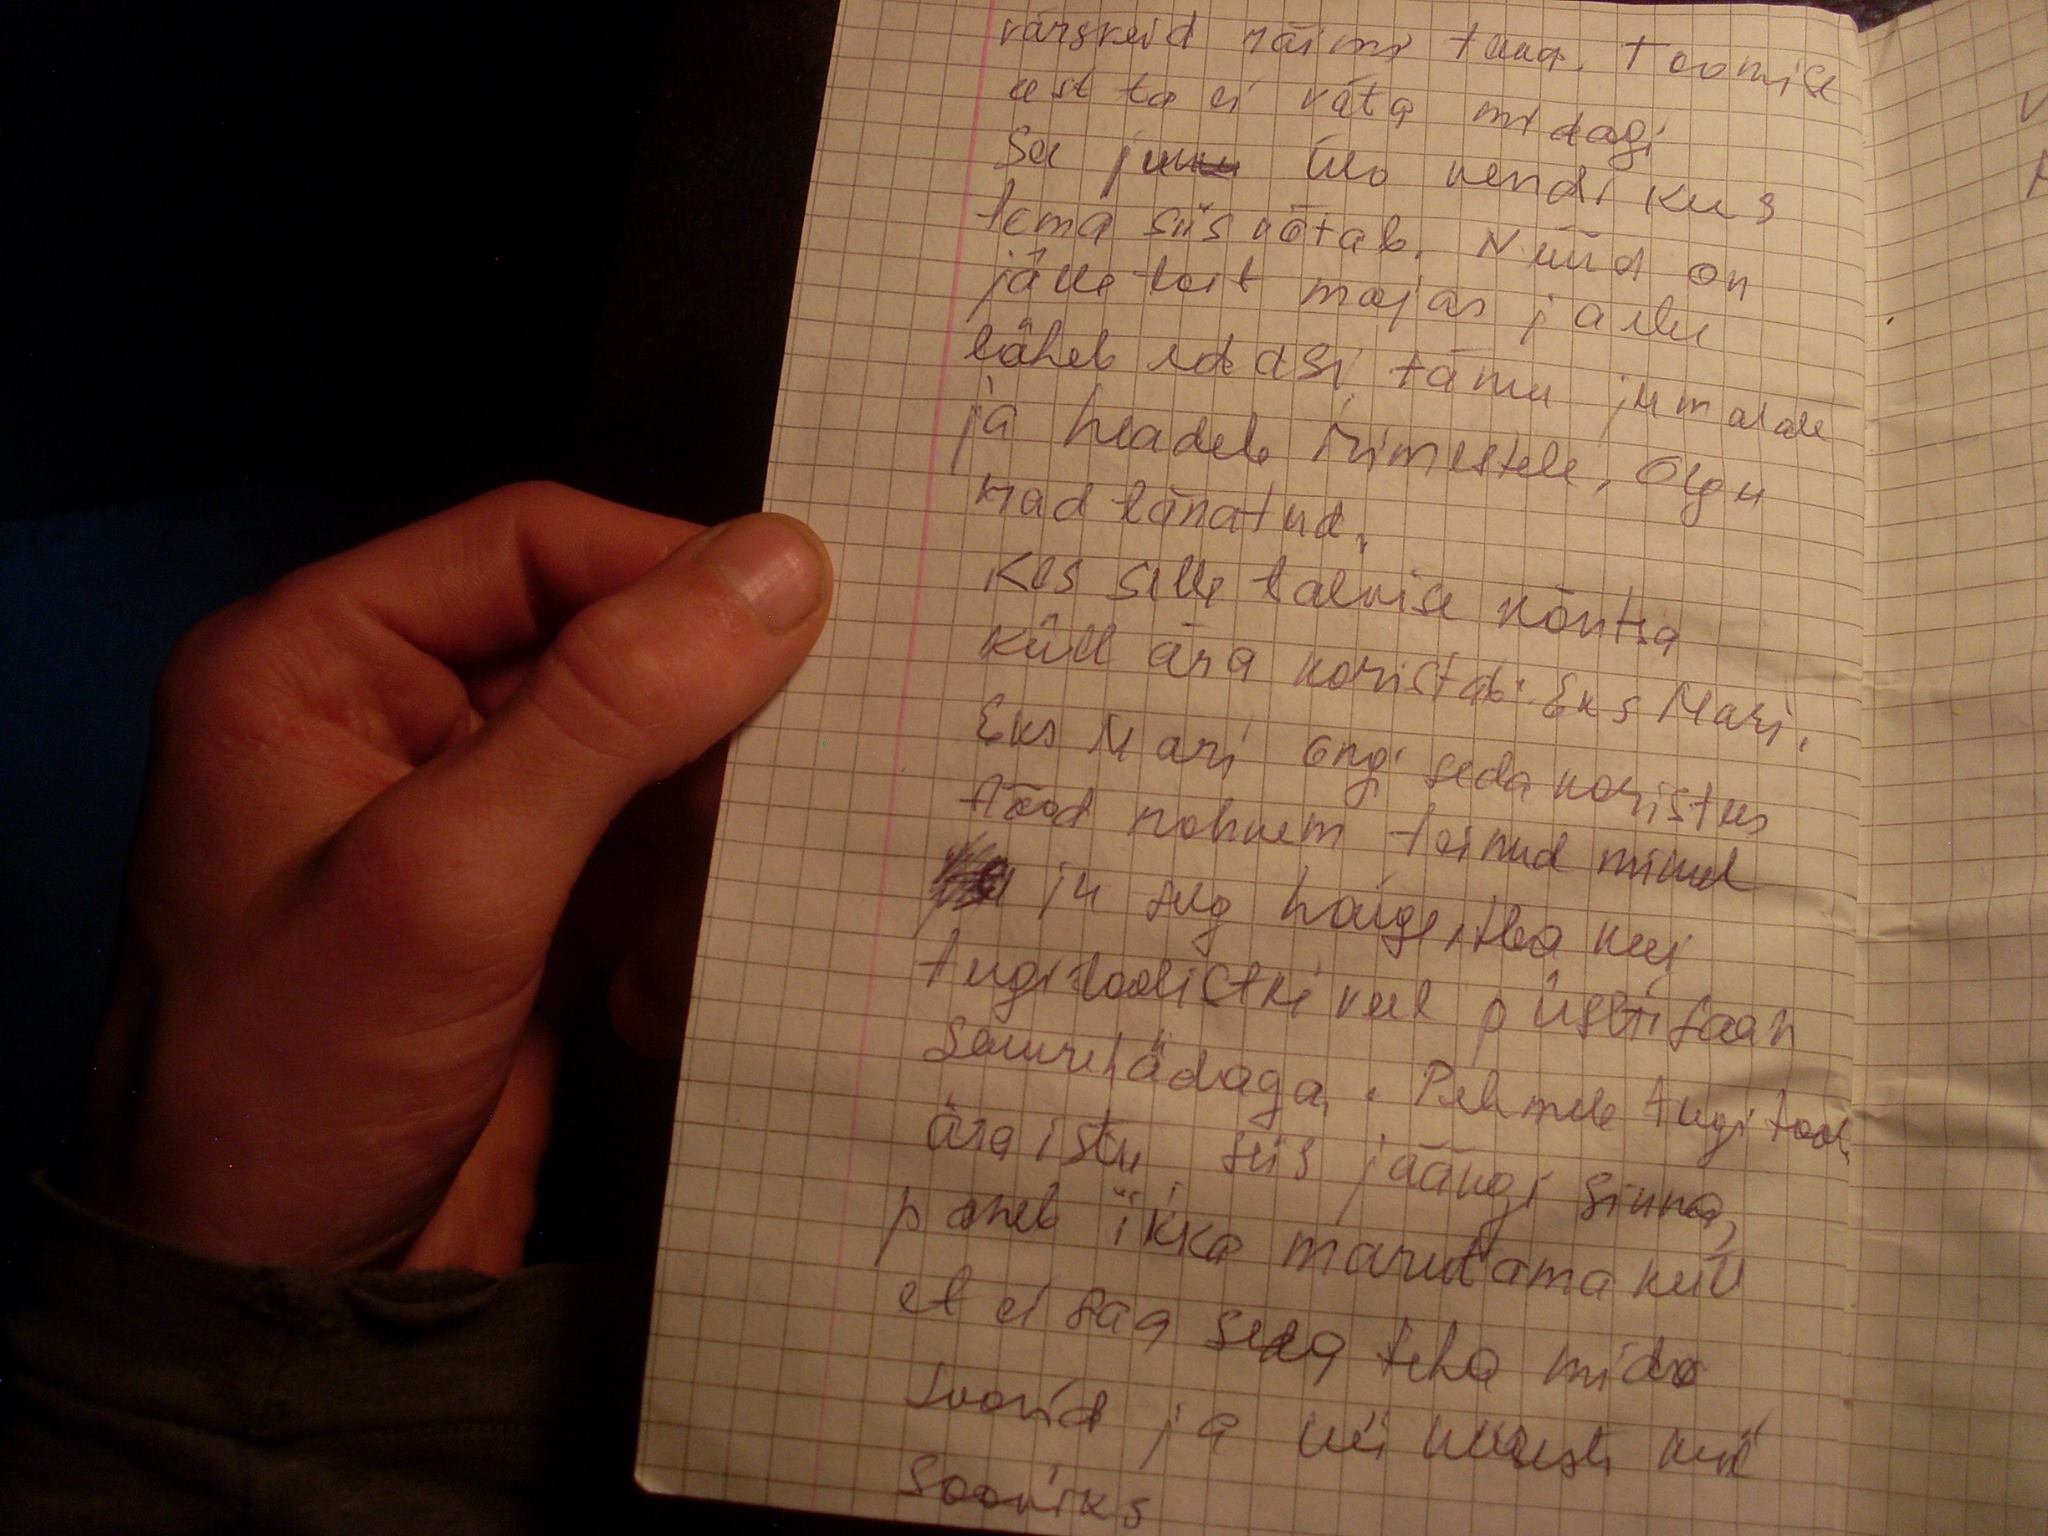 värskeid räimi tuua. Toomise
eest ta ei võta midagi
Se ju Ülo vendi kus
tema siis võtab. Nüüd on
jälle toit majas ja elu
läheb edasi, tänu jumalale
ja headele inimestele, Olgu
nad tänatud.
Kes selle talvise kõntsa
küll ära koristab. Eks Mari.
Eks Mari ongi seda koristus
tööd rohkem teinud minul
ju selg haige, tba kui
tugitoolistki veel püsti saan
suurehädaga. Pehmele tugitool
ära istu siis jäängi sinna,
paneb ikka marutama küll
et ei saa seda teha mida
soovid ja nii kiiresti kui
sooviks